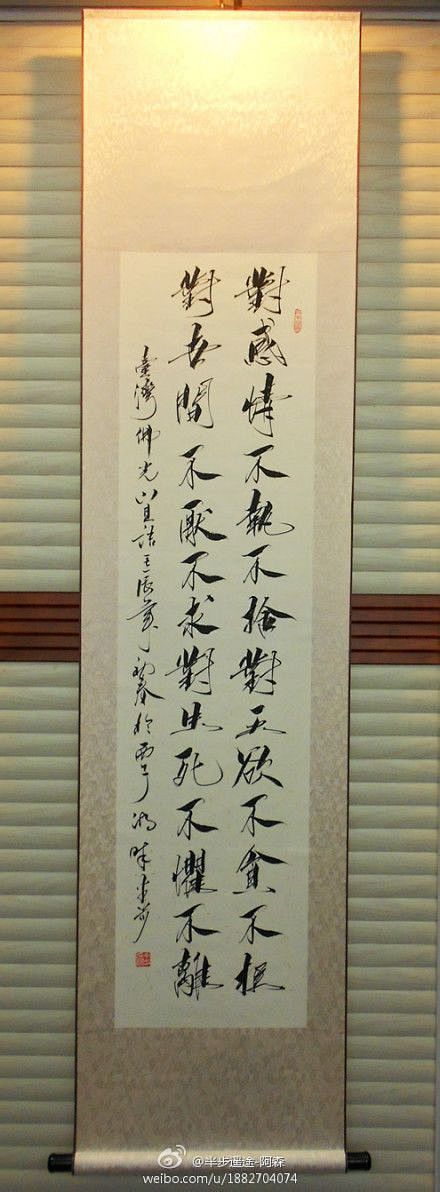 對感情不執不捨對五欲不貪不拒
對世間不厭不求對生死不懼不離
臺灣佛光山壬辰歲初春於西子湖畔半步
@半步遥途-阿森
weibo.com/u/1882704074